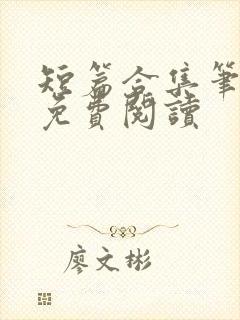 短篇合集筆
免費閱讀
廖文彬